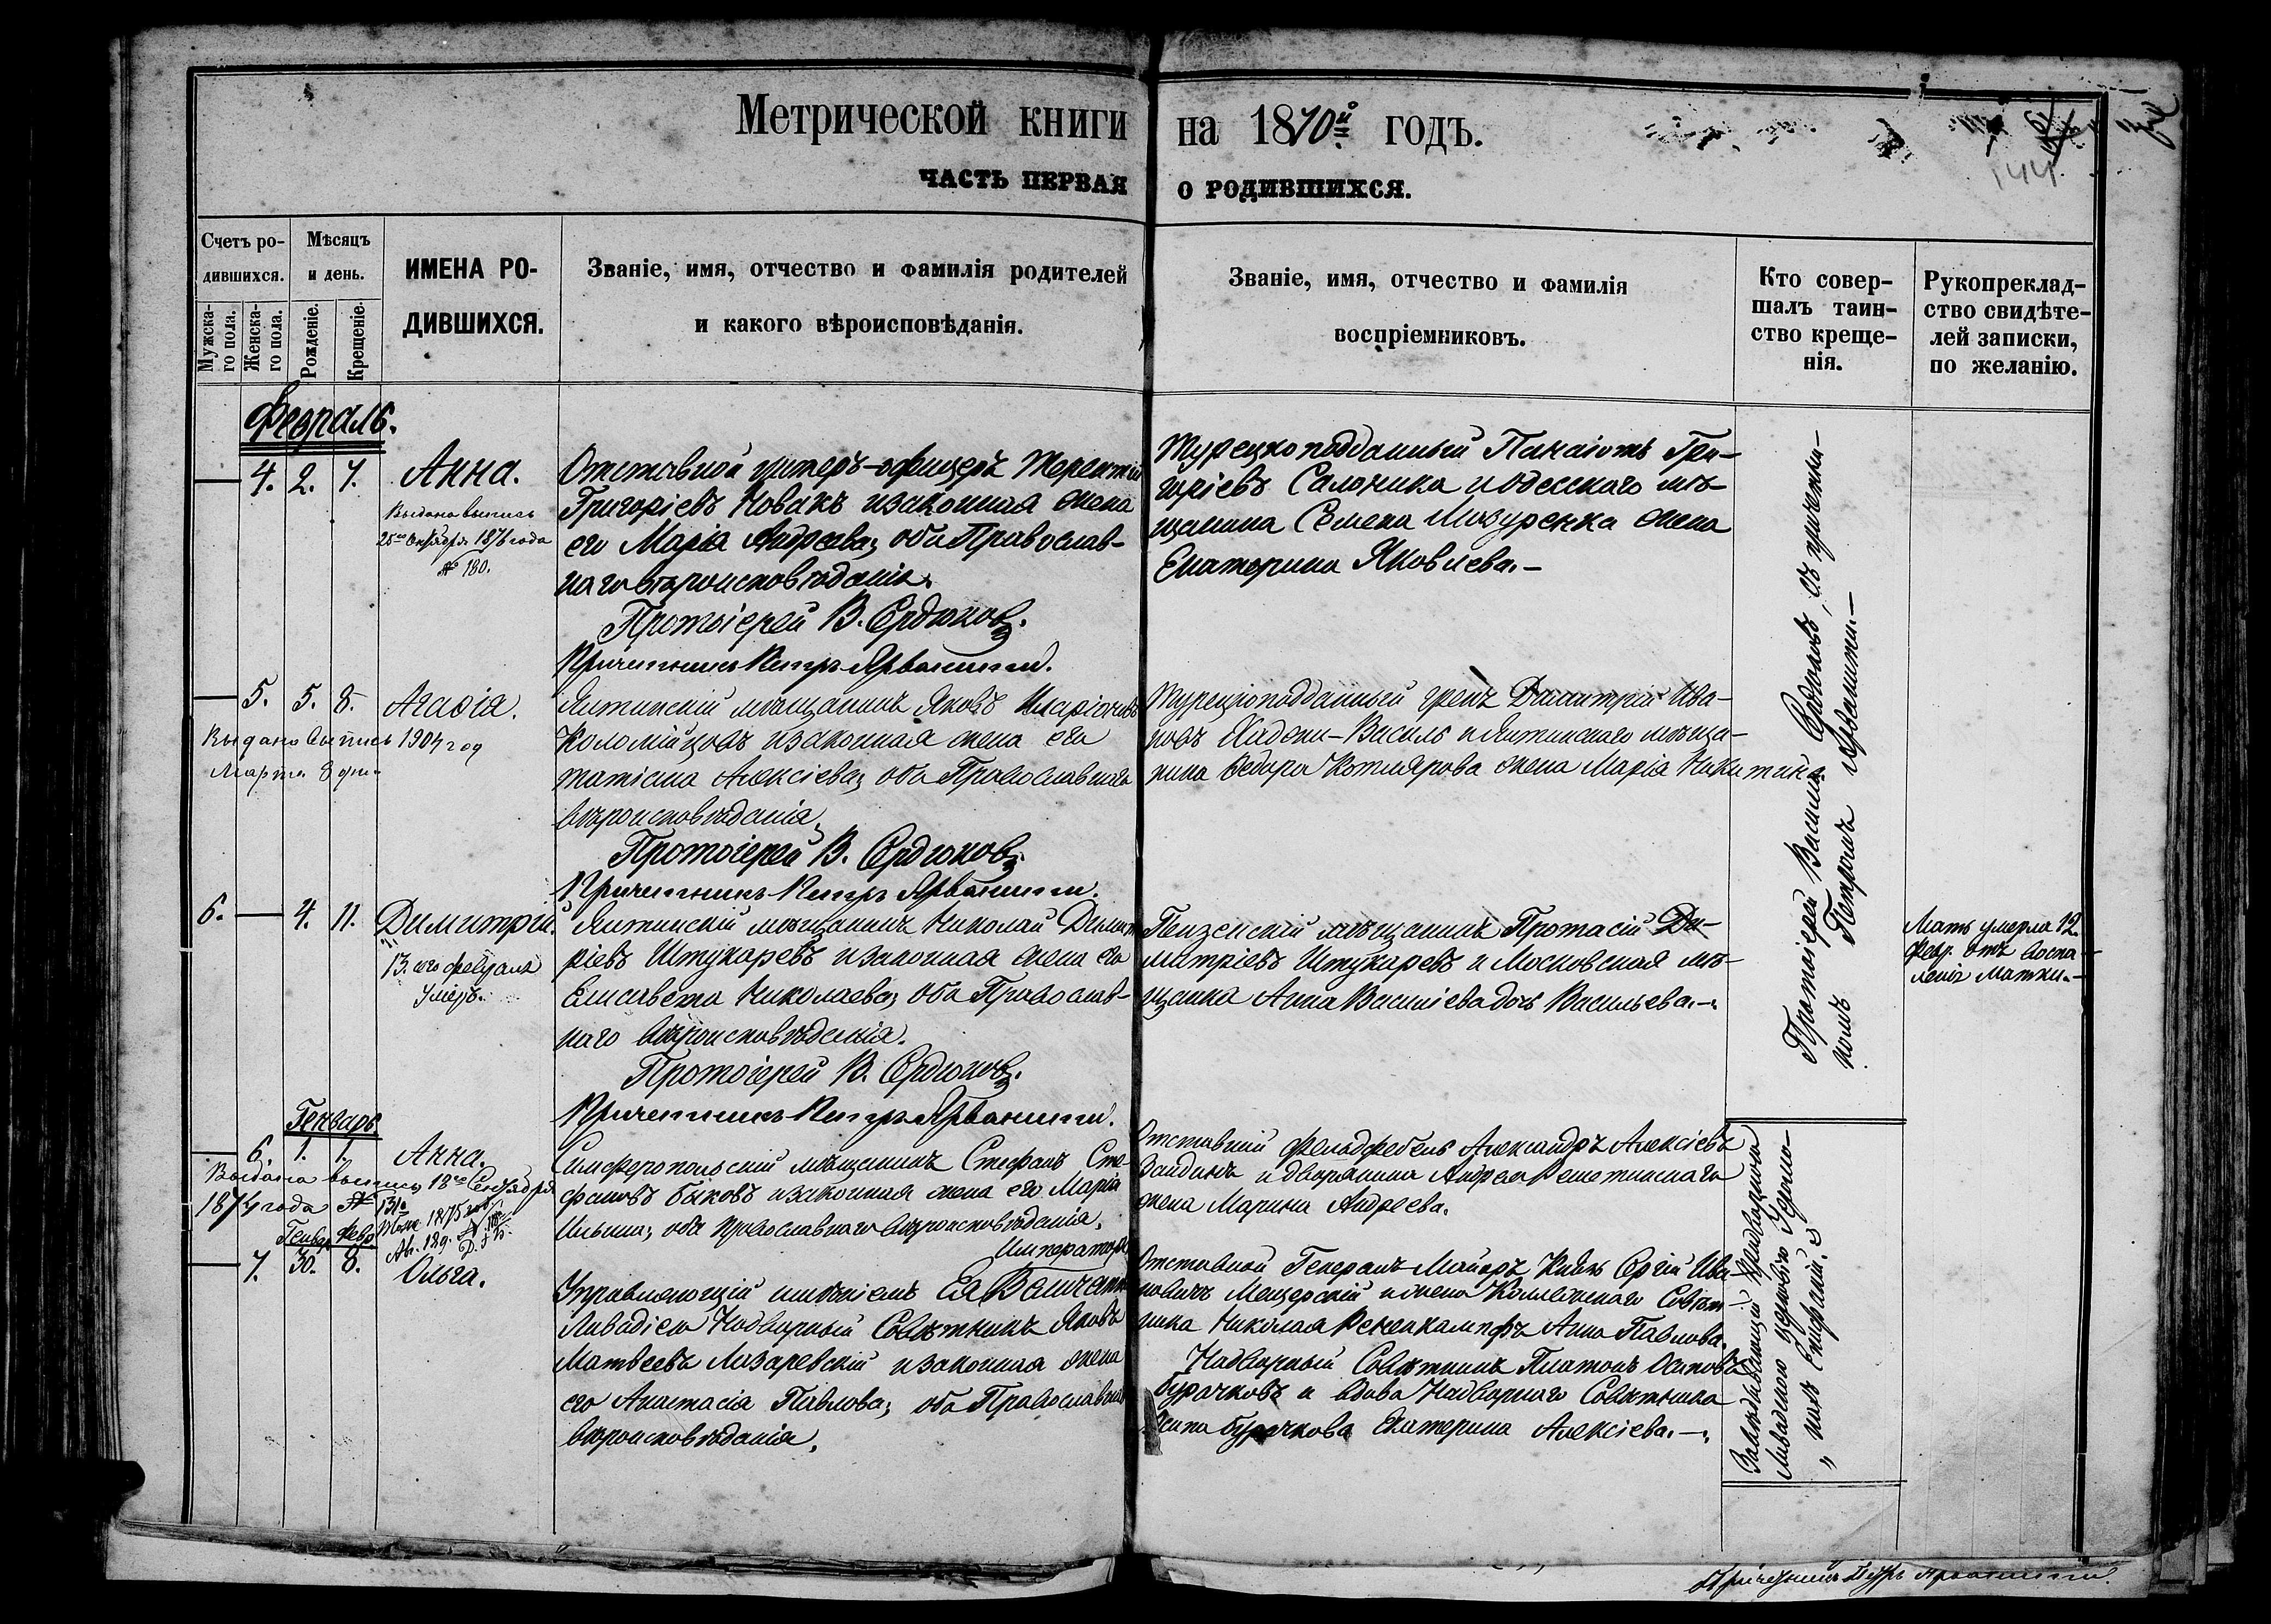 Метрической книги на 1870й годъ.
ЧАСТЬ ПЕРВАЯ О РОДИВШИХСЯ.
Счетъ ро-
дившихся.
Мужска-
го пола.
Женска-
го пола.
Мѣсяцъ
и день.
Рожденіе.
Крещеніе.
ИМЕНА РО-
ДИВШИХСЯ.
Званіе, имя, отчество и фамилія родителей
и какого вѣроисповѣданія.
Званіе, имя, отчество и фамилія
воспріемниковъ.
Кто совер-
шалъ таин-
ство креще-
нія.
Рукопреклад-
ство свидѣте-
лей записки,
по желанію.
144
Февраль.
— 4. 2. 7. Анна.
Выдана выпись
25го Октября 1876 года
№ 180.
Отставной унтеръ-офицеръ Терентій
Григоріевъ Новакъ и законная жена
его Марія Андреева, оба Православ-
наго вѣроисповѣданія.
Протоіерей В. Сердюковъ.
Причетникъ Петръ Арванити.
Турецкоподданный Панаіотъ Гри-
горіевъ Салоника и одесскаго мѣ-
щанина Семена Мазуренка жена
Екатерина Яковлева.—
— 5. 5. 8. Агафія.
Выдана выпись 1904 год
Марта 8 дня
Ялтинскій мѣщанинъ Яковъ Иларіоновъ
Коломійцовъ и законная жена его
Татіана Алексіева, оба Православнаго
вѣроисповѣданія.
Протоіерей В. Сердюковъ.
Причетникъ Петръ Арванити.
Турецкоподданный грекъ Димитрій Ива-
новъ Хаджи-Василь и Ялтинскаго мѣща-
нина Ѳедора Котлярова жена Марія Никитина.
6. — 4. 11. Димитрій.
13. сего февраля
умеръ.
Ялтинскій мѣщанинъ Николай Димит-
ріевъ Штукаревъ и законная жена его
Елисавета Николаева, оба Православ-
наго вѣроисповѣданія.
Протоіерей В. Сердюковъ.
Причетникъ Петръ Арванити.
Пензенскій мѣщанинъ Протасій Ди-
митріевъ Штукаревъ и Московская мѣ-
щанка Анна Василіева дочь Васильева.—
Мать умерла 12.
Февр. отъ воспа-
ленія матки.—
Протоіерей Василій Сердюковъ, съ причетни-
комъ Петромъ Арванити.—
Генварь
— 6. 1. 1. Анна.
Выдана выпись 18го Сентября
1874 года №
Симферопольскій мѣщанинъ Стефанъ Сте-
фановъ Быковъ и законная жена его Марія
Ильина, оба православнаго вѣроисповѣданія.
Отставной фельдфебель Александръ Алексіевъ
и дворянина Андрея Решетинскаго
жена Марина Андреева.
Генвар Февр
— 7. 30. 8. Ольга.
Император.
Управляющій имѣніемъ Ея Величества
Ливадіею Надворный Совѣтникъ Яковъ
Матвеевъ Лазаревскій и законная жена
его Анастасія Павлова, оба Православнаго
вѣроисповѣданія.
Отставной Генералъ-Маіоръ Князь Сергій Ива-
новичъ Мещерскій и жена Коллежскаго Совѣт-
ника Николая Ренекампфъ Анна Павлова.
Надворный Совѣтникъ Платонъ Осиповъ
Бурачковъ и вдова Надворнаго Совѣтника
Осипа Бурачкова Екатерина Алексіева.—
Завѣдывающій придворною
Ливадскою церковію Іеромо-
„ нахъ Епифаній.
Причетникъ Петръ Арванити.